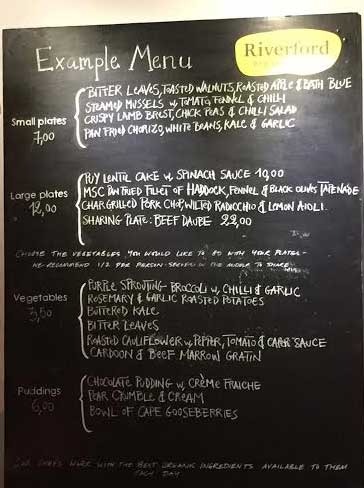 Example Menu
Riverford
Small plates
7,00
BITTER LEAVES, TOASTED WALNUTS, ROASTED APPLE & BATH BLUE
STEAMED MUSSELS w, TOMATO, FENNEL & CHILLI
CRISPY LAMB BREST, CHICK PEAS & CHILLI SALAD
PAN FRIED CHORIZO, WHITE BEANS, KALE & GARLIC
Large plates
12,00
PUY LENTIL CAKE w, SPINACH SAUCE 10,00
MSC PAN FRIED FILLET OF HADDOCK, FENNEL & BLACK OLIVES TAPENADE
CHARGRILLED PORK CHOP, WILTED RADICCHIO & LEMON AIOLI.
SHARING PLATE: BEEF DAUBE 22,00
CHOOSE THE VEGETABLES YOU WOULD LIKE TO GO WITH YOUR PLATES -
WE RECOMMEND 1/2 PER PERSON - SERVED IN THE MIDDLE TO SHARE
Vegetables
3,50
PURPLE SPROUTING BROCCOLI w, CHILLI & GARLIC
ROSEMARY & GARLIC ROASTED POTATOES
BUTTERED KALE
BITTER LEAVES
ROASTED CAULIFLOWER w, PEPPER, TOMATO & CAPER SAUCE
CARDOON & BEEF MARROW GRATIN
Puddings
6,00
CHOCOLATE PUDDING w, CRÈME FRAICHE
PEAR CRUMBLE & CREAM
BOWL OF CAPE GOOSEBERRIES
OUR CHEFS WORK WITH THE BEST ORGANIC INGREDIENTS AVAILABLE TO THEM
EACH DAY